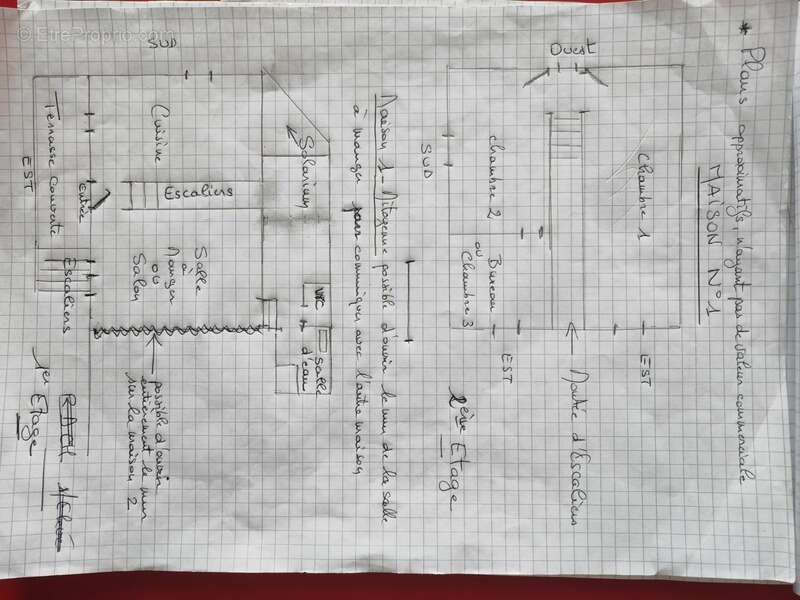 © EtreProprio.com
* Plans approximatifs, n'ayant pas de valeur commerciale
MAISON N°1
Ouest
Chambre 1
chambre 2
SUD
Bureau
ou
Chambre 3
EST
EST
Montée d'Escaliers
2ème Etage
Maison 1 Mitoyenne possible d'ouvrir le mur de la salle
à manger pour communiquer avec l'autre maison
SUD
Solarium
Cuisine
Escaliers
Salle
à
Manger
ou
Salon
WC
Salle
d'eau
Entrée
Terrasse Couverte
EST
Escaliers
possible d'ouvrir
entièrement le mur
sur la maison 2
1er Etage